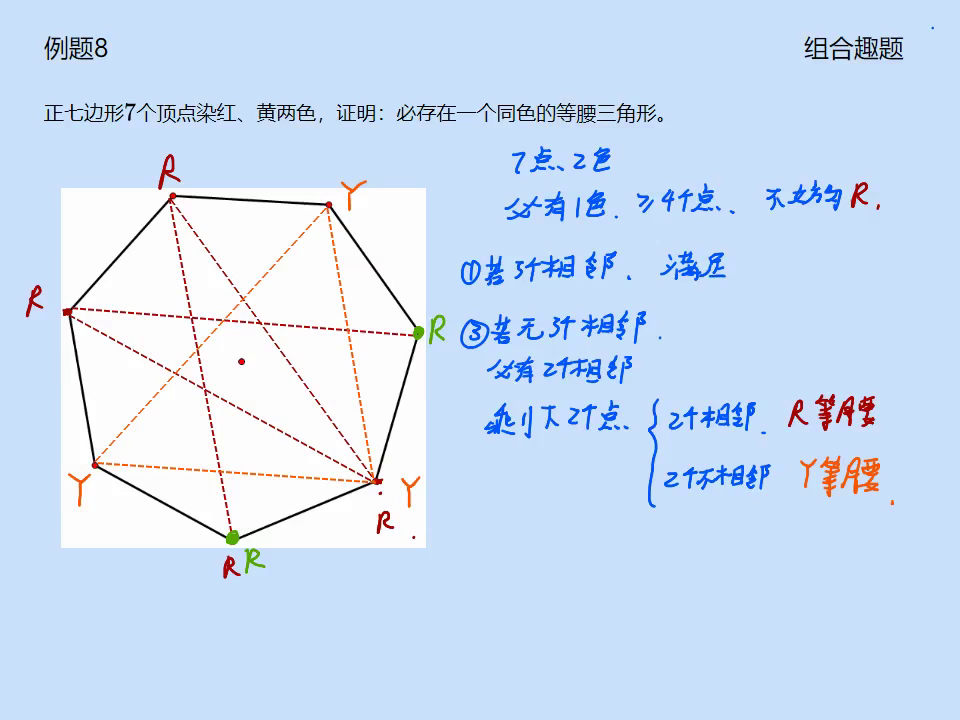 例题8
组合趣题
正七边形7个顶点染红、黄两色，证明：必存在一个同色的等腰三角形。
7点、2色
必有1色．≥4个点、不妨为R．
①若3个相邻．满足
③若无3个相邻．
必有2个相邻
剩下2个点、
2个相邻．R等腰
2个不相邻 Y等腰．
R
Y
R
R
Y
Y
R
R R